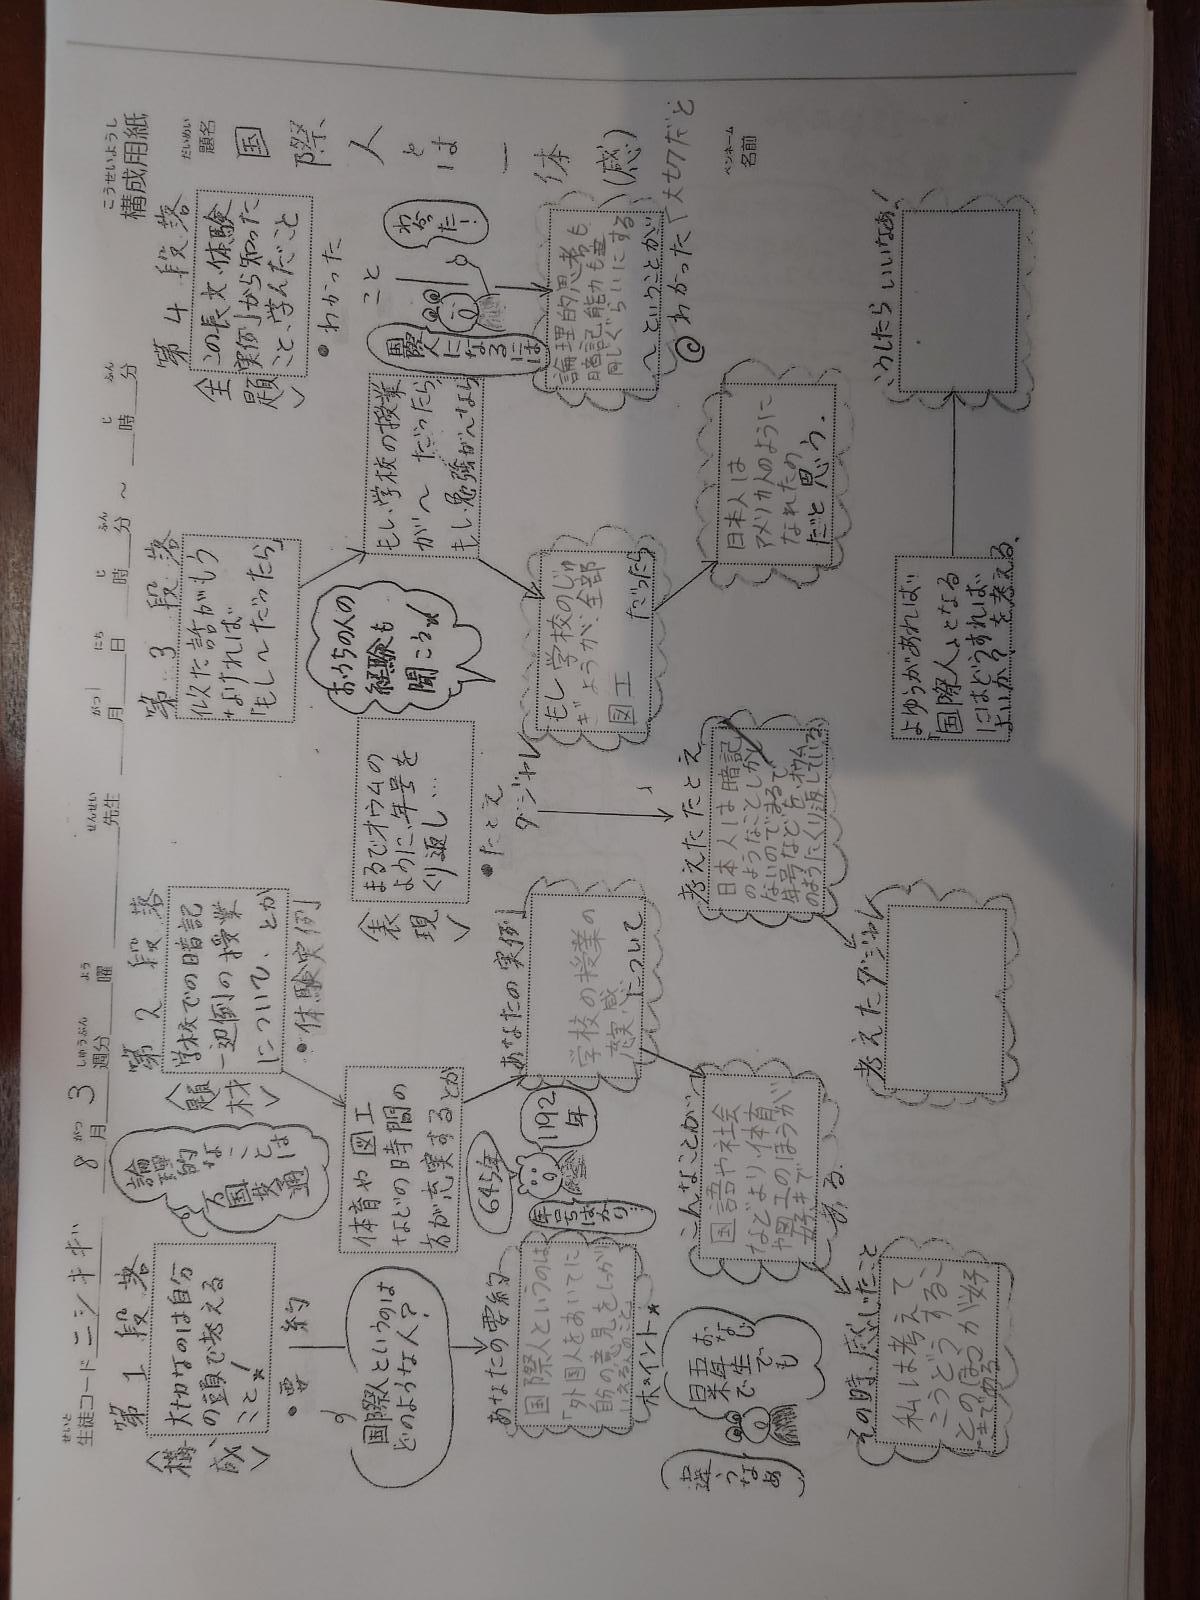 構成用紙
こうせいようし
生徒コード ニシキギ 8月 3週分 曜 先生 月 日 時 分 ～ 時 分
せいと がつ しゅうぶん よう せんせい がつ にち じ ふん じ ふん
題名 国際人とは
だいめい
ペンネーム
名前
第1段落
〈構成〉
大切なのは自分
の頭で考える
こと!
・要約
国際人というのは
どのような人?
あなたの要約
国際人というのは
「外国人をあいてに
自分の意見をしっかり
いえる人のこと。
ポイント★
論理的
なことは
万国共通
第2段落
〈題材〉
学校での暗記
一辺倒の授業
について、とか
・体験実例
体育や図工
などの時間の
方が充実するとか
645年
1192年
年号ばかり!
あなたの実例
学校の授業の
について
こんなことが…
国語や社会
などより、体育
や図工のほうが
好きで
ある。
その時、感じたこと
私は考えて
こうどうするこ
とのほうが好
きである
〈表現〉
まるでオウムの
ように、年号を
くり返し…
・たとえ
ダジャレ
考えたたとえ
日本人は暗記
のようなことしかし
ないので、まるで
年号などを、オウム
のようにくり返している。
考えたダジャレ
第3段落
似た話がもう
なければ
「もし～だったら」
おうちの人の
経験も
聞こう★
もし、学校の授業
が～だったら、
もし勉強が～なら
もし学校のじゅ
ぎょうが、全部
図工
だったら
日本人は
アメリカ人のように
なれたの
だと思う。
第4段落
〈全題〉
この長文、体験
実例から知った
こと、学んだこと
・わかった
こと
わかった!
国際人になるには
論理的思考も
暗記能力も
同じぐらいにする
～ということが
@わかった「大切だと
よゆうがあれば
「国際人」となる
にはどうすれば
よいか?を考える。
こうしたらいいなあ!